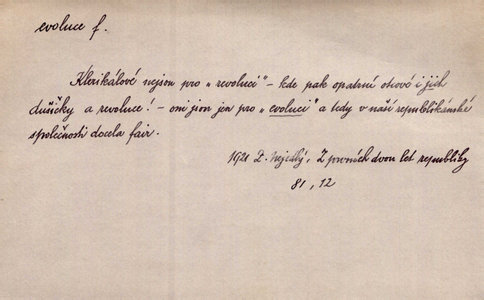 evoluce f.
Klerikálové nejsou pro „revoluci" – kde pak opatrní otcové i jich
dušičky a revoluce! – oni jsou jen pro „evoluci" a tedy v naší republikánské
společnosti docela fair.
1921 Z. Nejedlý, Z prvních dvou let republiky
81, 12